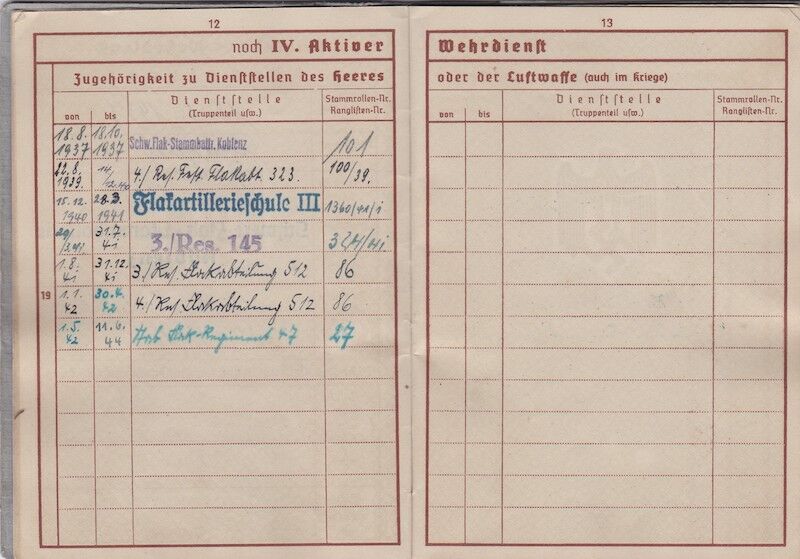 12
noch IV. Aktiver
Zugehörigkeit zu Dienststellen des Heeres
von bis Dienststelle (Truppenteil usw.) Stammrollen-Nr. Ranglisten-Nr.
18.8. 1937 18.10. 1937 Schw. Flak-Stammbattr. Koblenz 101
22.8. 1939. 14/12.40 4./ Res. Fest. Flakabt. 323. 100/39.
15.12. 1940 28.3. 1941 Flakartillerieschule III 1360/41/i
29/3.41 31.7. 41 3./Res. 145 324/41
1.8. 41 31.12. 41 3./ Res Flakabteilung 512 86
19 1.1. 42 30.4. 42 4./ Res Flakabteilung 512 86
1.5. 42 11.6. 44 Stab Flak-Regiment 47 27
13
Wehrdienst
oder der Luftwaffe (auch im Kriege)
von bis Dienststelle (Truppenteil usw.) Stammrollen-Nr. Ranglisten-Nr.